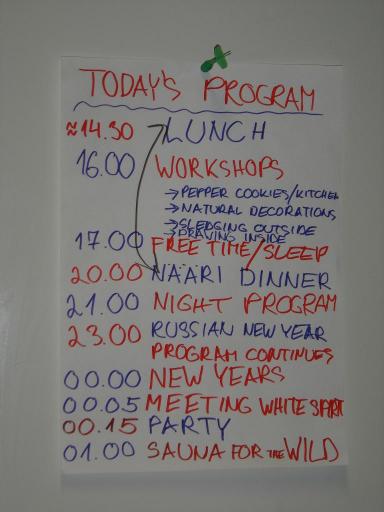 TODAY'S PROGRAM
≈14.30 LUNCH
16.00 WORKSHOPS
→PEPPER COOKIES/KITCHEN
→NATURAL DECORATIONS
→SLEDGING OUTSIDE
→DRAWING INSIDE
17.00 FREE TIME/SLEEP
20.00 NAARI DINNER
21.00 NIGHT PROGRAM
23.00 RUSSIAN NEW YEAR
PROGRAM CONTINUES
00.00 NEW YEARS
00.05 MEETING WHITE
00.15 PARTY
01.00 SAUNA FOR THE WILD